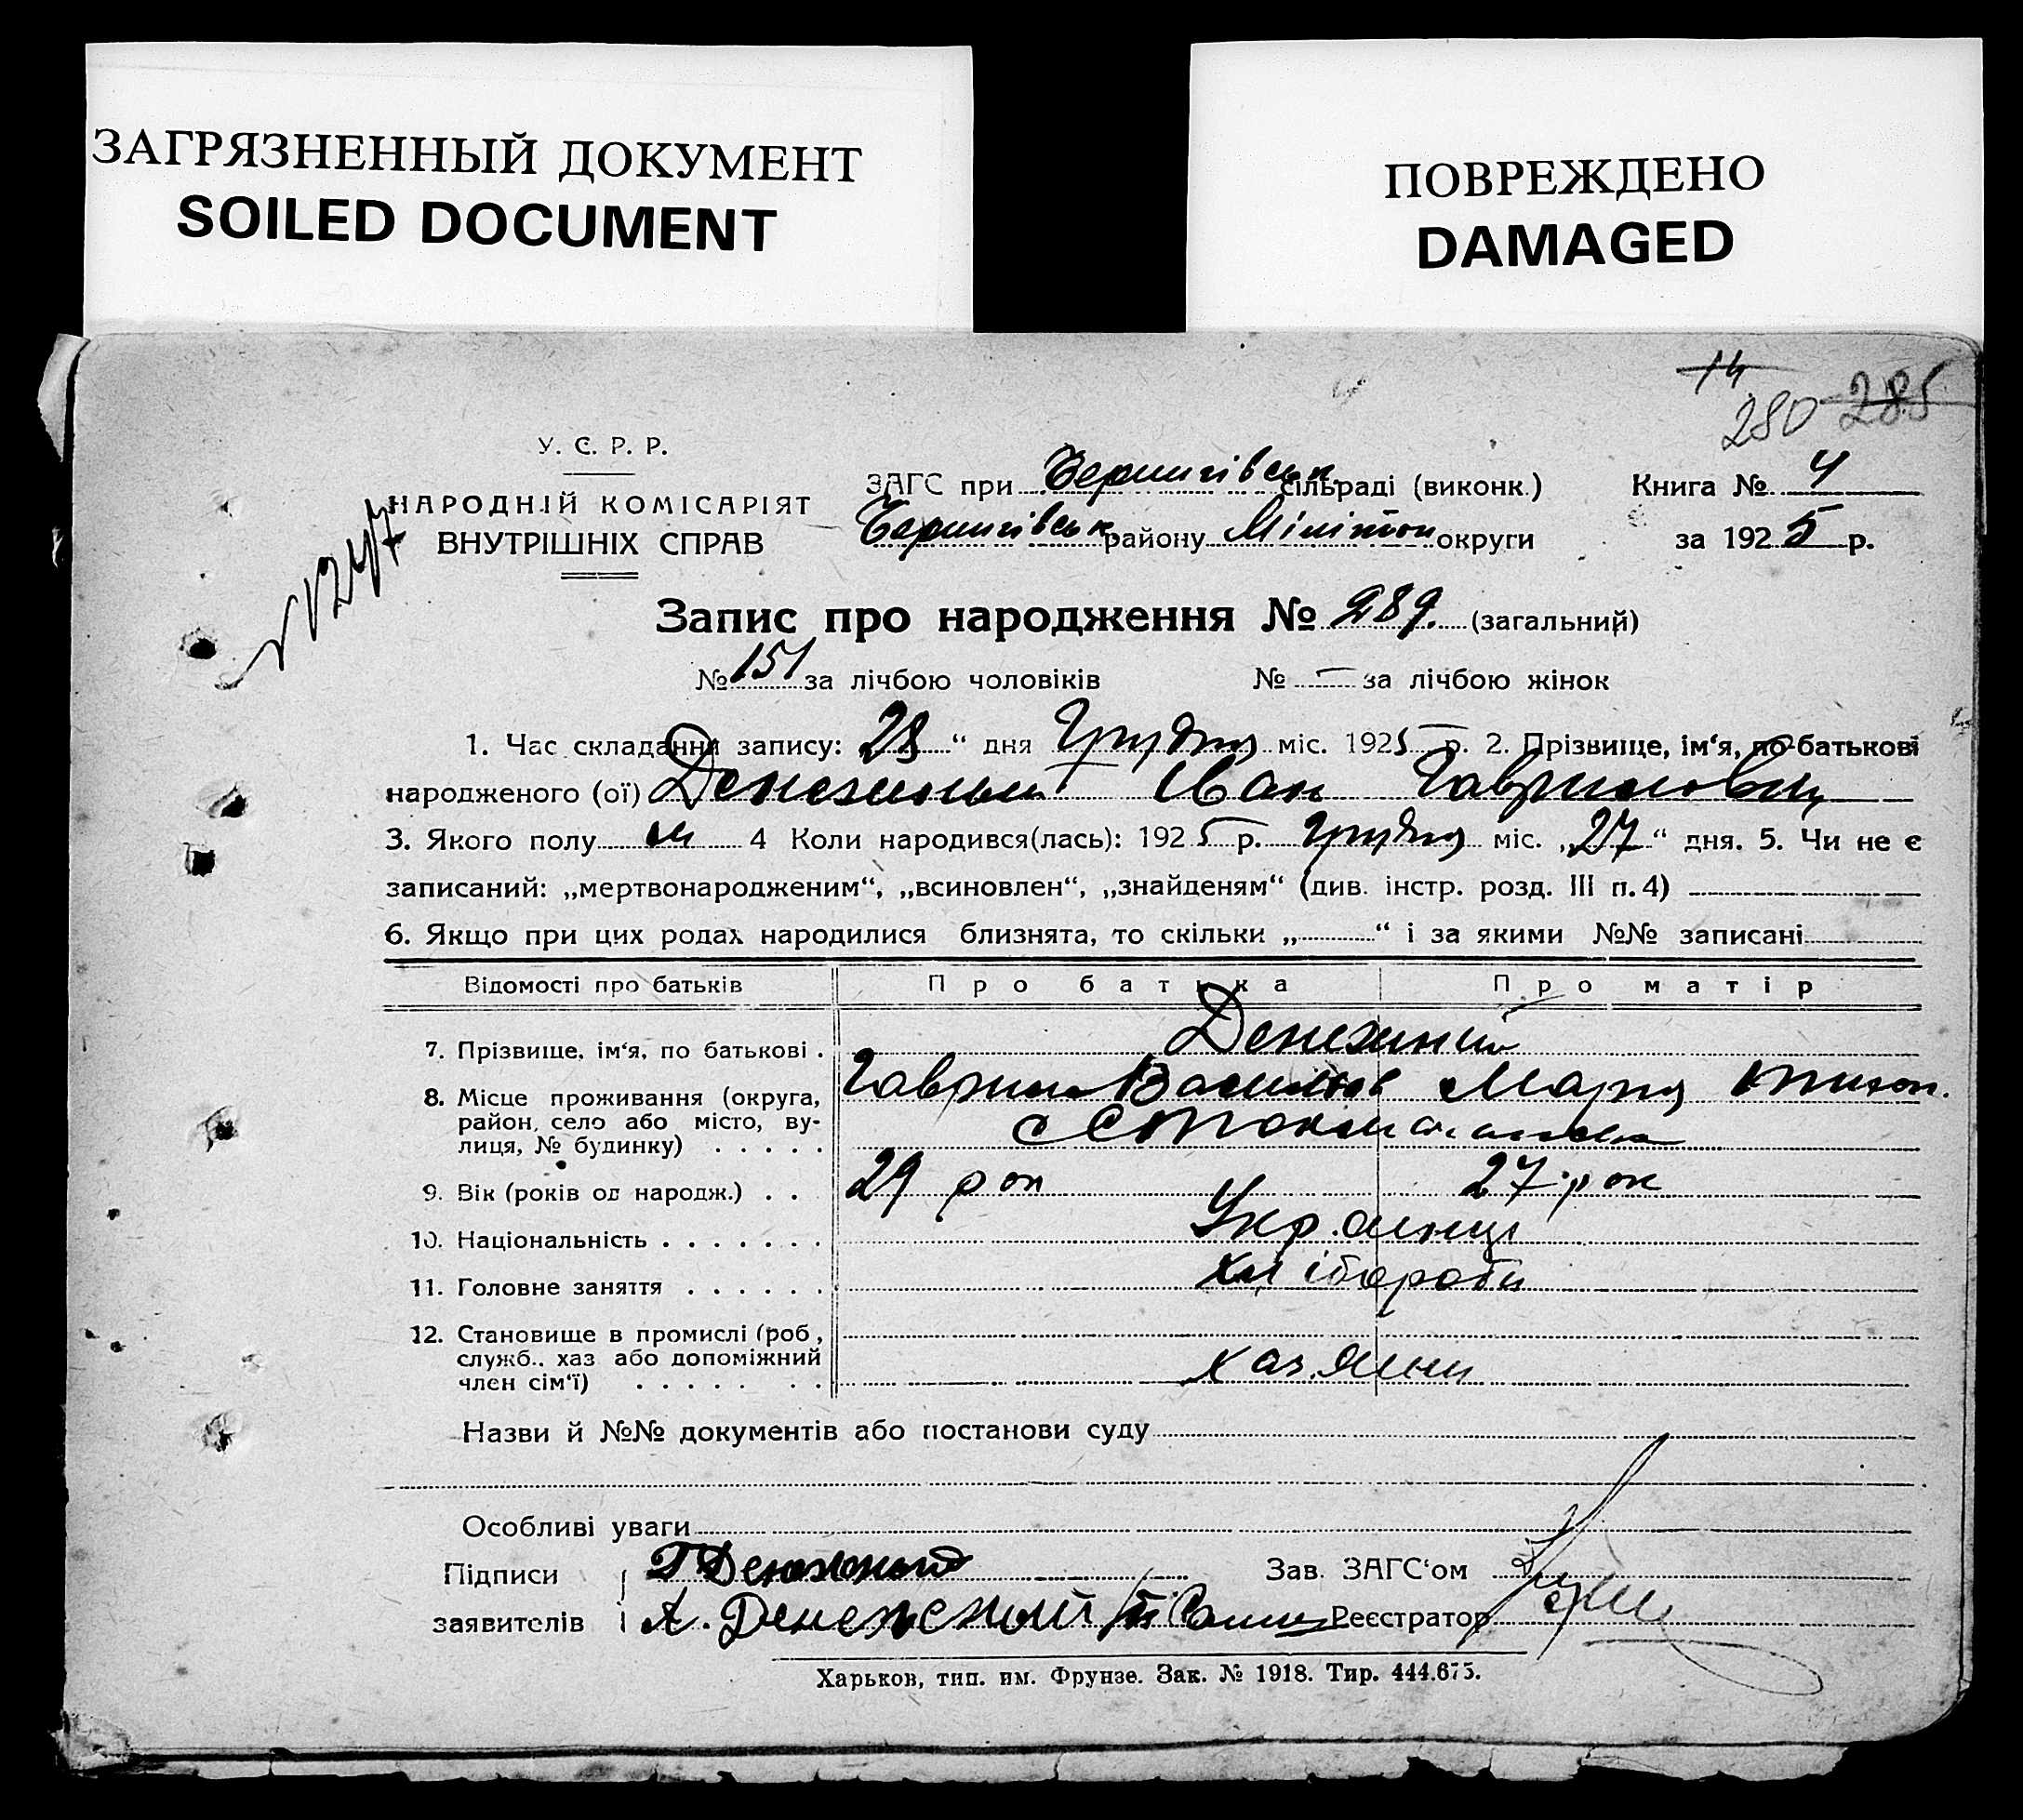 ЗАГРЯЗНЕННЫЙ ДОКУМЕНТ
SOILED DOCUMENT
ПОВРЕЖДЕНО
DAMAGED
14
280 285
У. С. Р. Р.
НАРОДНІЙ КОМІСАРІЯТ
ВНУТРІШНІХ СПРАВ
№1247
ЗАГС при Чернигівськ. сільраді (виконк.) Книга № 4
Чернигівськ. району Мілітоп округи за 1925 р.
Запис про народження № 289. (загальний)
№ 151 за лічбою чоловіків № – за лічбою жінок
1. Час складання запису: 28 “ дня Грудня міс. 1925 р. 2. Прізвище, ім‘я, по-батькові
народженого (ої) Денежный Іван Гаврилович
3. Якого полу м 4 Коли народився(лась): 1925 р. Грудня міс. „27“ дня. 5. Чи не є
записаний: „мертвонародженим“, „всиновлен“, „знайденям“ (див. інстр. розд. III п. 4)
6. Якщо при цих родах народилися близнята, то скільки „ “ і за якими №№ записані
Відомості про батьків Про батька Про матір
7. Прізвище, ім‘я, по батькові . Денежний
8. Місце проживання (округа, Гаврило Васильов Мария
район, село або місто, ву-
лиця, № будинку) . . . . .
9. Вік (років од народж.) . . 29 рок 27 рок
10. Національність . . . . . . . Українці
11. Головне заняття . . . . . . Хлібороби
12. Становище в промислі (роб.,
служб., хаз або допоміжний хазяини
член сім‘ї) . . . . . . .
Назви й №№ документів або постанови суду
Особливі уваги
Підписи Г Денежный Зав. ЗАГС‘ом
заявителів А. Денежений Реєстратор
Харьков, тип. им. Фрунзе. Зак. № 1918. Тир. 444.675.